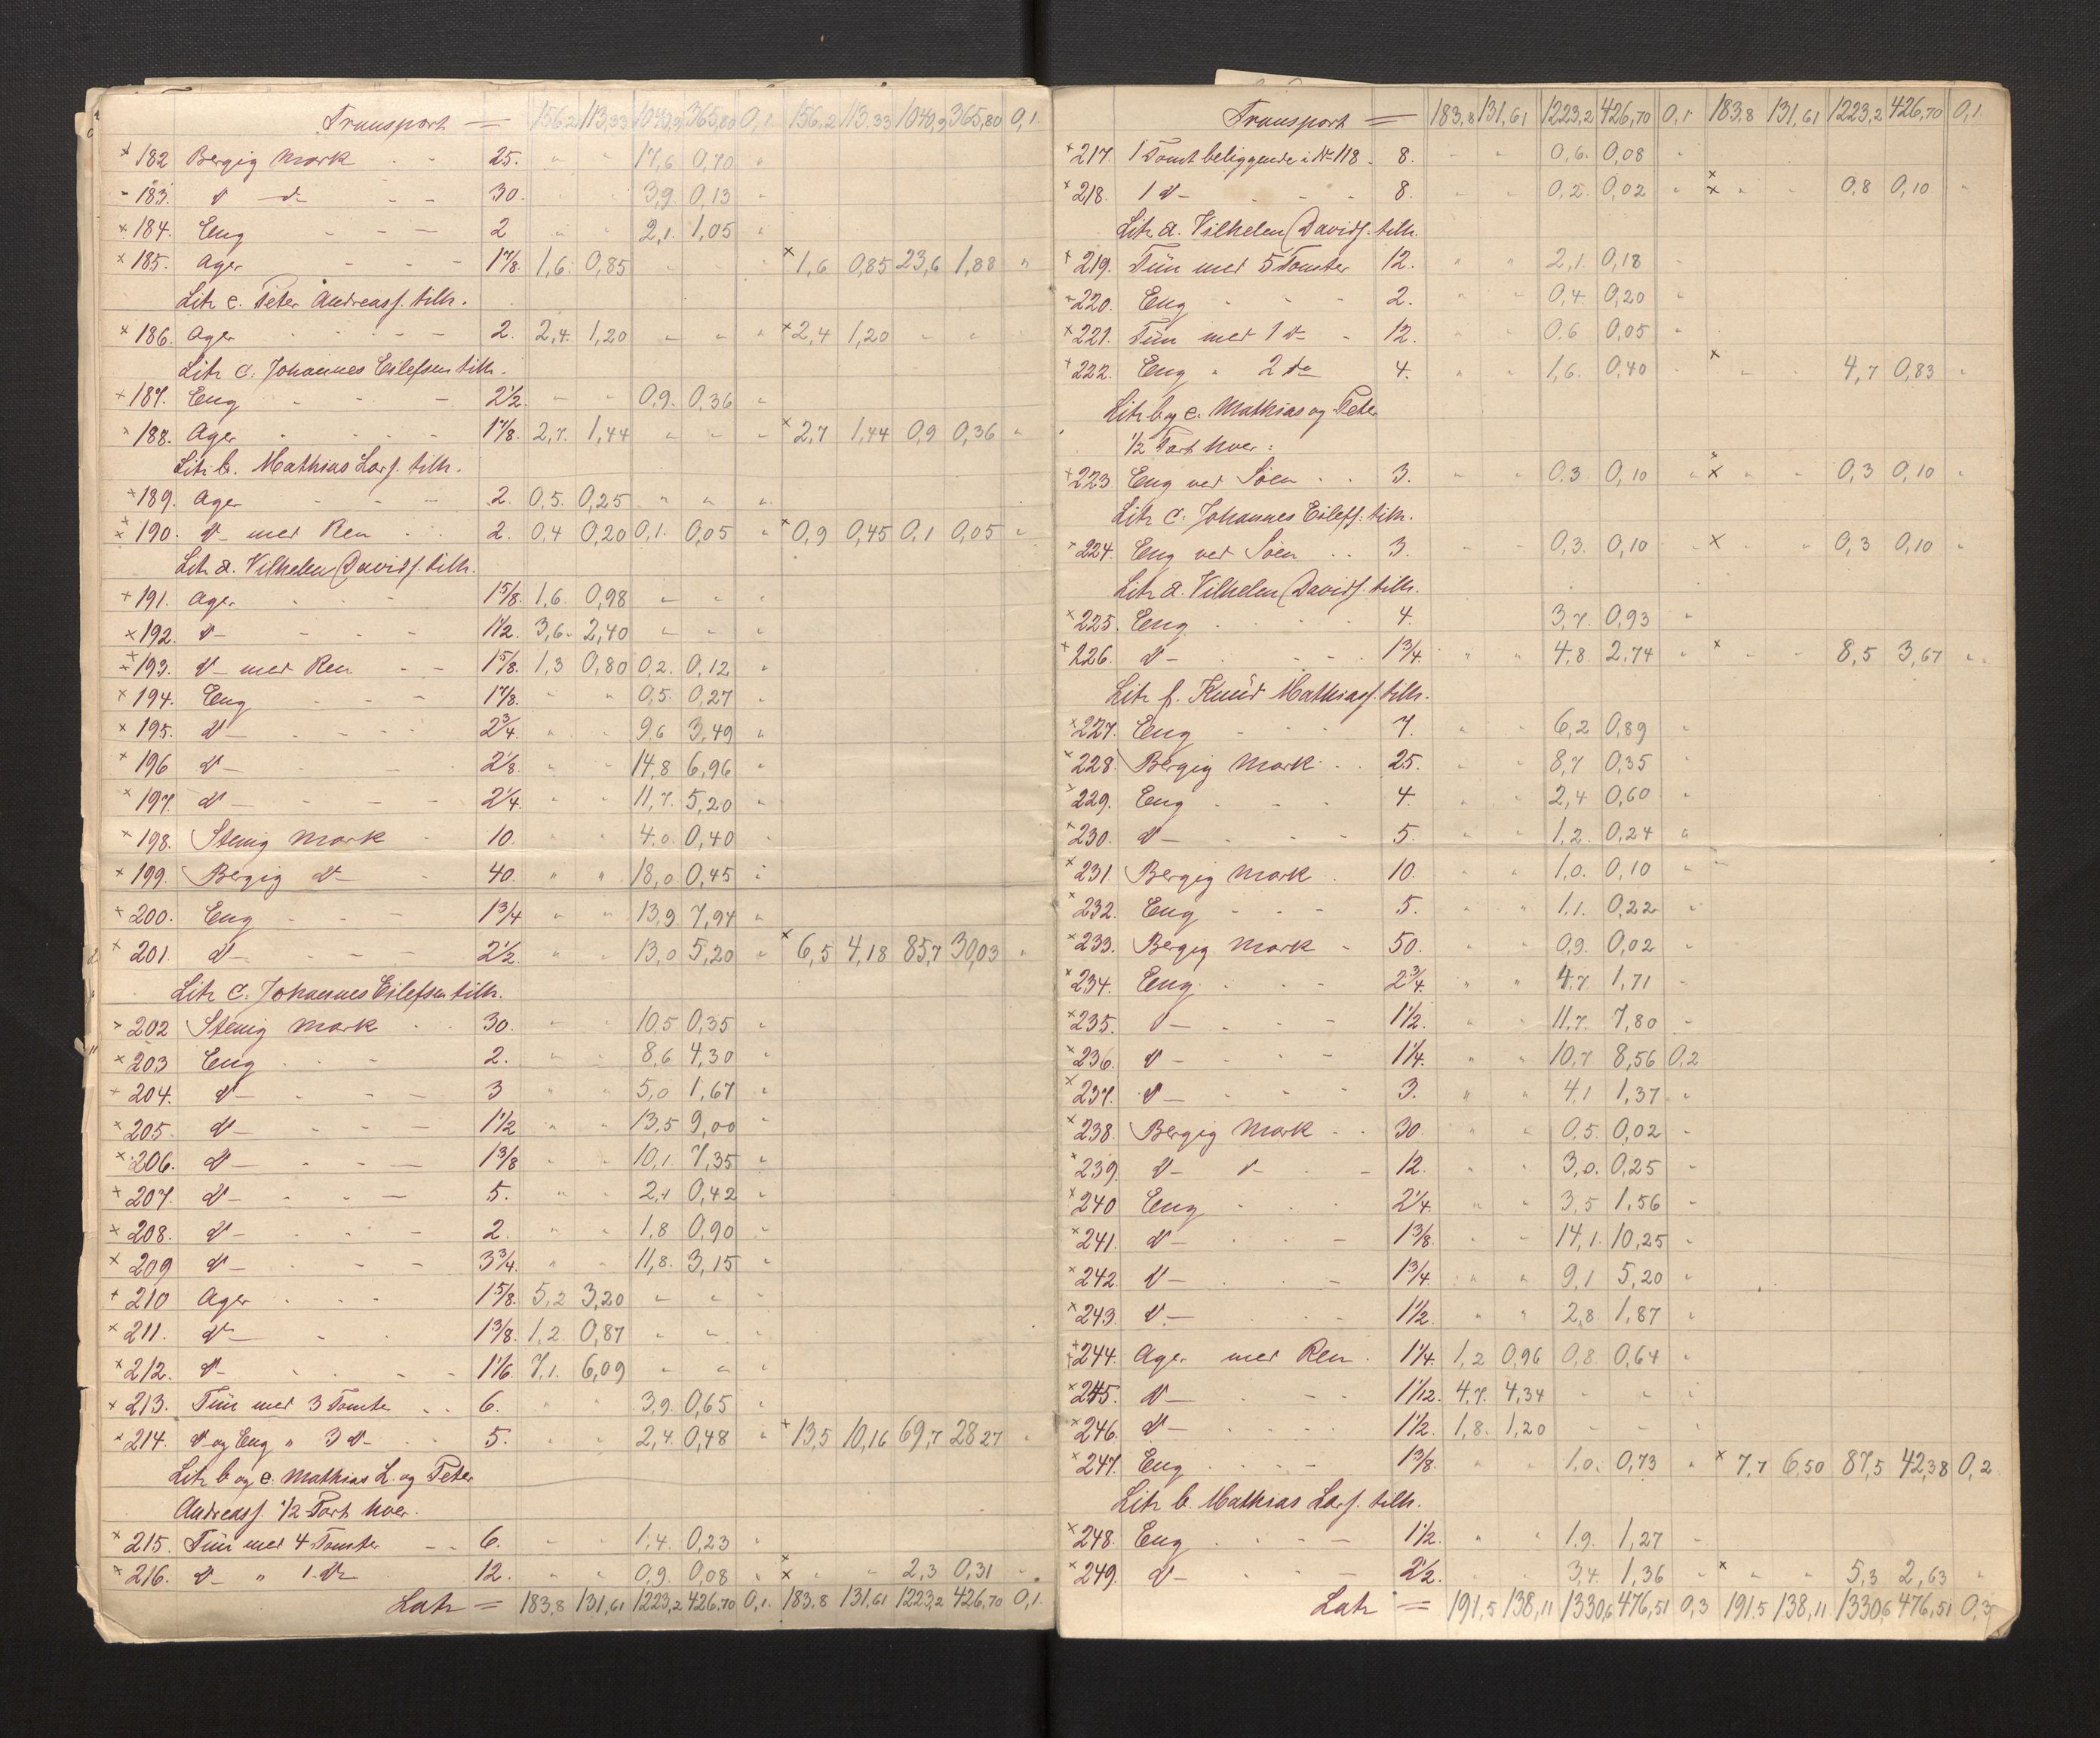 Transport = 156,2 113,33 1040,3 365,80 0,1. 156,2 113,33 1040,3 365,80 0,1.
× 182 Bergig Mark . - 25. " " 17,6 0,70 "
- 183. d -d- - - 30. 3,9. 0,13 "
× 184. Eng - - - 2 " " 2,1. 1,05 "
× 185. Ager - - - 1 7/8. 1,6. 0,85 - - " × 1,6 0,85 23,6 1,88 "
Litr e. Peter Andreass. tilh.
× 186. Ager - - - 2. 2,4. 1,20 " " " × 2,4 1,20 " "
Litr c. Johannes Eilefsen tilh.
× 187. Eng - - - 2 1/2. - - 0,9. 0,36 "
× 188. Ager - - - 1 7/8. 2,7. 1,44 " " " × 2,7 1,44 0,9 0,36 "
Litr b. Mathias Lars. tilh.
× 189. Ager - - - 2. 0,5. 0,25 " " "
× 190. d- med Ren . . 2. 0,4 0,20 0,1. 0,05 " × 0,9 0,45 0,1 0,05 "
Litr a. Vilhelm Davids. tilh.
× 191. Ager - - - 1 5/8. 1,6. 0,98 " " "
× 192. d- - - - 1 1/2. 3,6. 2,40 " " "
× 193. d- med Ren - - 1 5/8. 1,3 0,80 0,2. 0,12 "
× 194. Eng - - - 1 7/8. " " 0,5. 0,27 "
× 195. d- - - - 2 3/4. " " 9,6 3,49 "
× 196 d- - 2 1/8. " " 14,8 6,96 "
× 197. d- - - - 2 1/4. " " 11,7. 5,20 "
× 198. Stenig Mark - 10. " " 4,0. 0,40 "
× 199. Bergig d- - 40. " " 18,0 0,45 "
× 200. Eng - - - 1 3/4 " " 13,9. 7,94 "
× 201. d- - - - 2 1/2. " " 13,0 5,20 " × 6,5 4,18 85,7 30,03 "
Litr c. Johannes Eilefsen tilh.
× 202 Stenig Mark . . 30. " " 10,5 0,35 "
× 203 Eng . - - 2. " " 8,6 4,30 "
× 204. d- - - - 3 " " 5,0 1,67 "
× 205. d- - - - 1 1/2 " " 13,5 9,00 "
× 206. d- - - - 1 3/8 " " 10,1. 7,35 "
× 207. d- - - - 5. " " 2,1 0,42 "
× 208. d- - - - 2. " " 1,8 0,90 "
× 209 d- - - - 3 3/4. " " 11,8. 3,15 "
× 210 Ager - - - 1 5/8. 5,2 3,20 " " "
× 211. d- - - 1 3/8. 1,2. 0,87 " " "
× 212. d- - - - 1 1/6. 7,1. 6,09 " " "
× 213. Tün med 3 Tomter . . 6. " " 3,9. 0,65 "
× 214. d- og Eng " 3 d- . . 5. " " 2,4. 0,48 " × 13,5 10,16 69,7 28,27 "
Litr b og e. Mathias L. og Peter
Andreass. 1/2 Part hver.
× 215. Tün med 4 Tomter - - 6. - - 1,4. 0,23 "
× 216. d- " 1. d- 12. " " 0,9. 0,08 " × " " 2,3 0,31 "
Latr = 183,8 131,61 1223,2 426,70 0,1. 183,8 131,61 1223,2 426,70 0,1.
Transport = 183,8 131,61 1223,2 426,70 0,1. 183,8 131,61 1223,2 426,70 0,1
× 217. 1 Tomt beliggende i N 118. 8. - - 0,6. 0,08 "
× 218. 1 d- - - 8. - - 0,2. 0,02 " × " - 0,8 0,10 "
Litr a. Vilhelm Davids. tilh.
× 219. Tün med 5 Tomter 12. " " 2,1. 0,18 "
× 220. Eng - - - 2. " " 0,4. 0,20 "
× 221. Tün med 1 d- - 12. " " 0,6 0,05 "
× 222. Eng " 2 do 4. " " 1,6. 0,40 " × - - 4,7 0,83 "
Litr b og e. Mathias og Peter
1/2 Part hver:
× 223 Eng ved Söen . . 3. - - 0,3. 0,10 " × " - 0,3 0,10 "
Litr c: Johannes Eilefs: tilh.
× 224. Eng ved Söen . . 3. - - 0,3. 0,10 " × - " 0,3 0,10 "
Litr a. Vilhelm Davids. tilh.
× 225. Eng . . . . 4. 3,7. 0,93 "
× 226. d- - - - 1 3/4. " " 4,8 2,74 " × - - 8,5 3,67 "
Litr f. Knüd Mathiass. tilh.
× 227. Eng - - - 7. " " 6,2 0,89 "
× 228. Bergig Mark . . 25. " " 8,7 0,35 "
× 229. Eng . . . 4. " " 2,4 0,60 "
× 230. d- . - - 5. " " 1,2. 0,24 "
× 231. Bergig Mark . 10. " " 1,0. 0,10 "
× 232. Eng - - - 5. " " 1,1. 0,22 "
× 233. Bergig Mark - 50. " " 0,9. 0,02 "
× 234. Eng . . - 2 3/4. " " 4,7. 1,71 "
× 235. d- . . - 1 1/2. " " 11,7. 7,80 "
× 236. d- . . - 1 1/4. " " 10,7 8,56 0,2
× 237. d- - - - 3. " " 4,1 1,37 "
× 238. Bergig Mark . . 30. " " 0,5. 0,02 "
× 239. d- d- . - 12. " " 3,0. 0,25 "
× 240 Eng . . . 2 1/4. " " 3,5 1,56 "
× 241. d- . . - 1 3/8. " " 14,1. 10,25 "
× 242. d- . . - 1 3/4. " " 9,1 5,20 "
× 243. d- . . . 1 1/2. " " 2,8 1,87 "
× 244. Ager med Ren . 1 1/4. 1,2 0,96 0,8 0,64 "
× 245. d- . - - 1 1/12. 4,7. 4,34 " " "
× 246. d- . . . . 1 1/2. 1,8. 1,20 - - "
× 247. Eng . . . - 1 3/8. " " 1,0. 0,73 " × 7,7 6,50 87,5 42,38 0,2
Litr b. Mathias Lars. tilh.
× 248. Eng . . - - 1 1/2. " " 1,9. 1,27 -
× 249. d- - - - 2 1/2. - - 3,4. 1,36 " × " " 5,3 2,63 "
Latr = 191,5 138,11 1330,6 476,51 0,3 191,5 138,11 1330,6 476,51 0,3